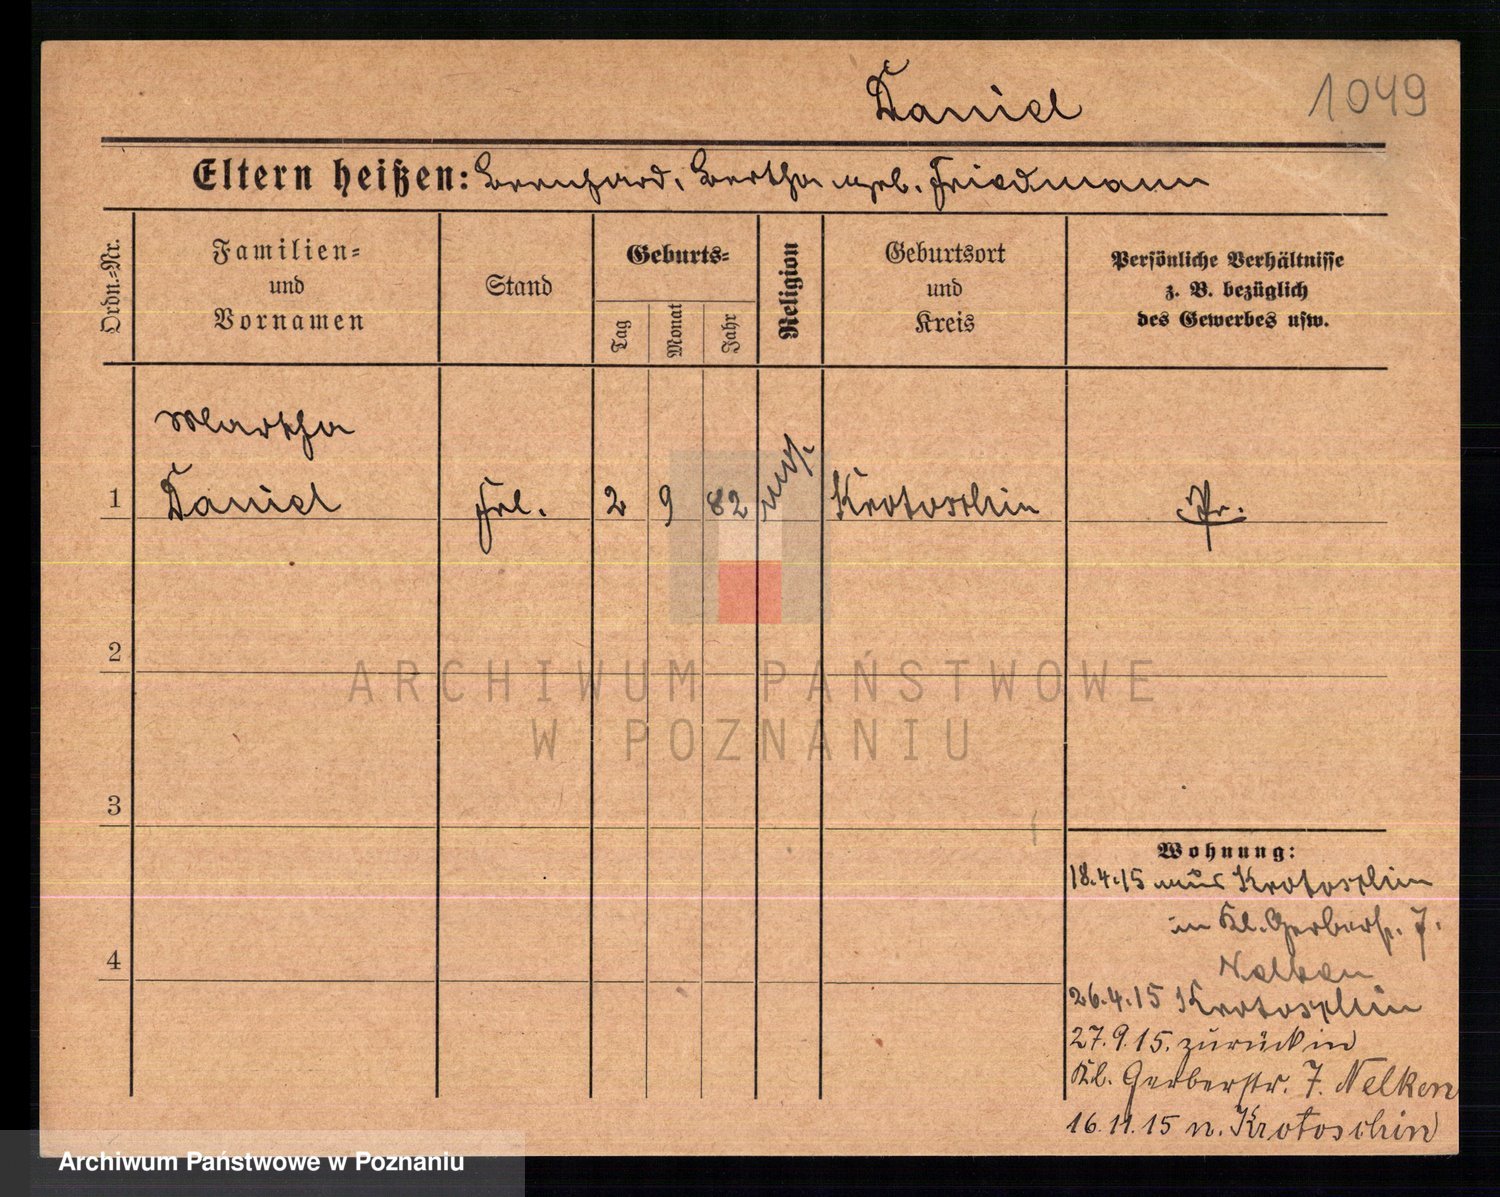 Daniel
1049
Eltern heißen: Bernhard, Bertha geb. Friedmann
Ordn.-Nr.
Familien-
und
Vornamen
Stand
Geburts-
Tag
Monat
Jahr
Religion
Geburtsort
und
Kreis
Persönliche Verhältnisse
z. B. bezüglich
des Gewerbes usw.
Martha
1 Daniel Frl. 2 9 82 mos. Krotoschin Pr.
2
ARCHIWUM PAŃSTWOWE
W POZNANIU
3
Wohnung:
18.4.15 aus Krotoschin
in Kl. Gerberstr. 7.
Nelken
4
26.4.15 Krotoschin
27.9.15. zurück in
Kl. Gerberstr. 7. Nelken
16.11.15 n. Krotoschin
Archiwum Państwowe w Poznaniu